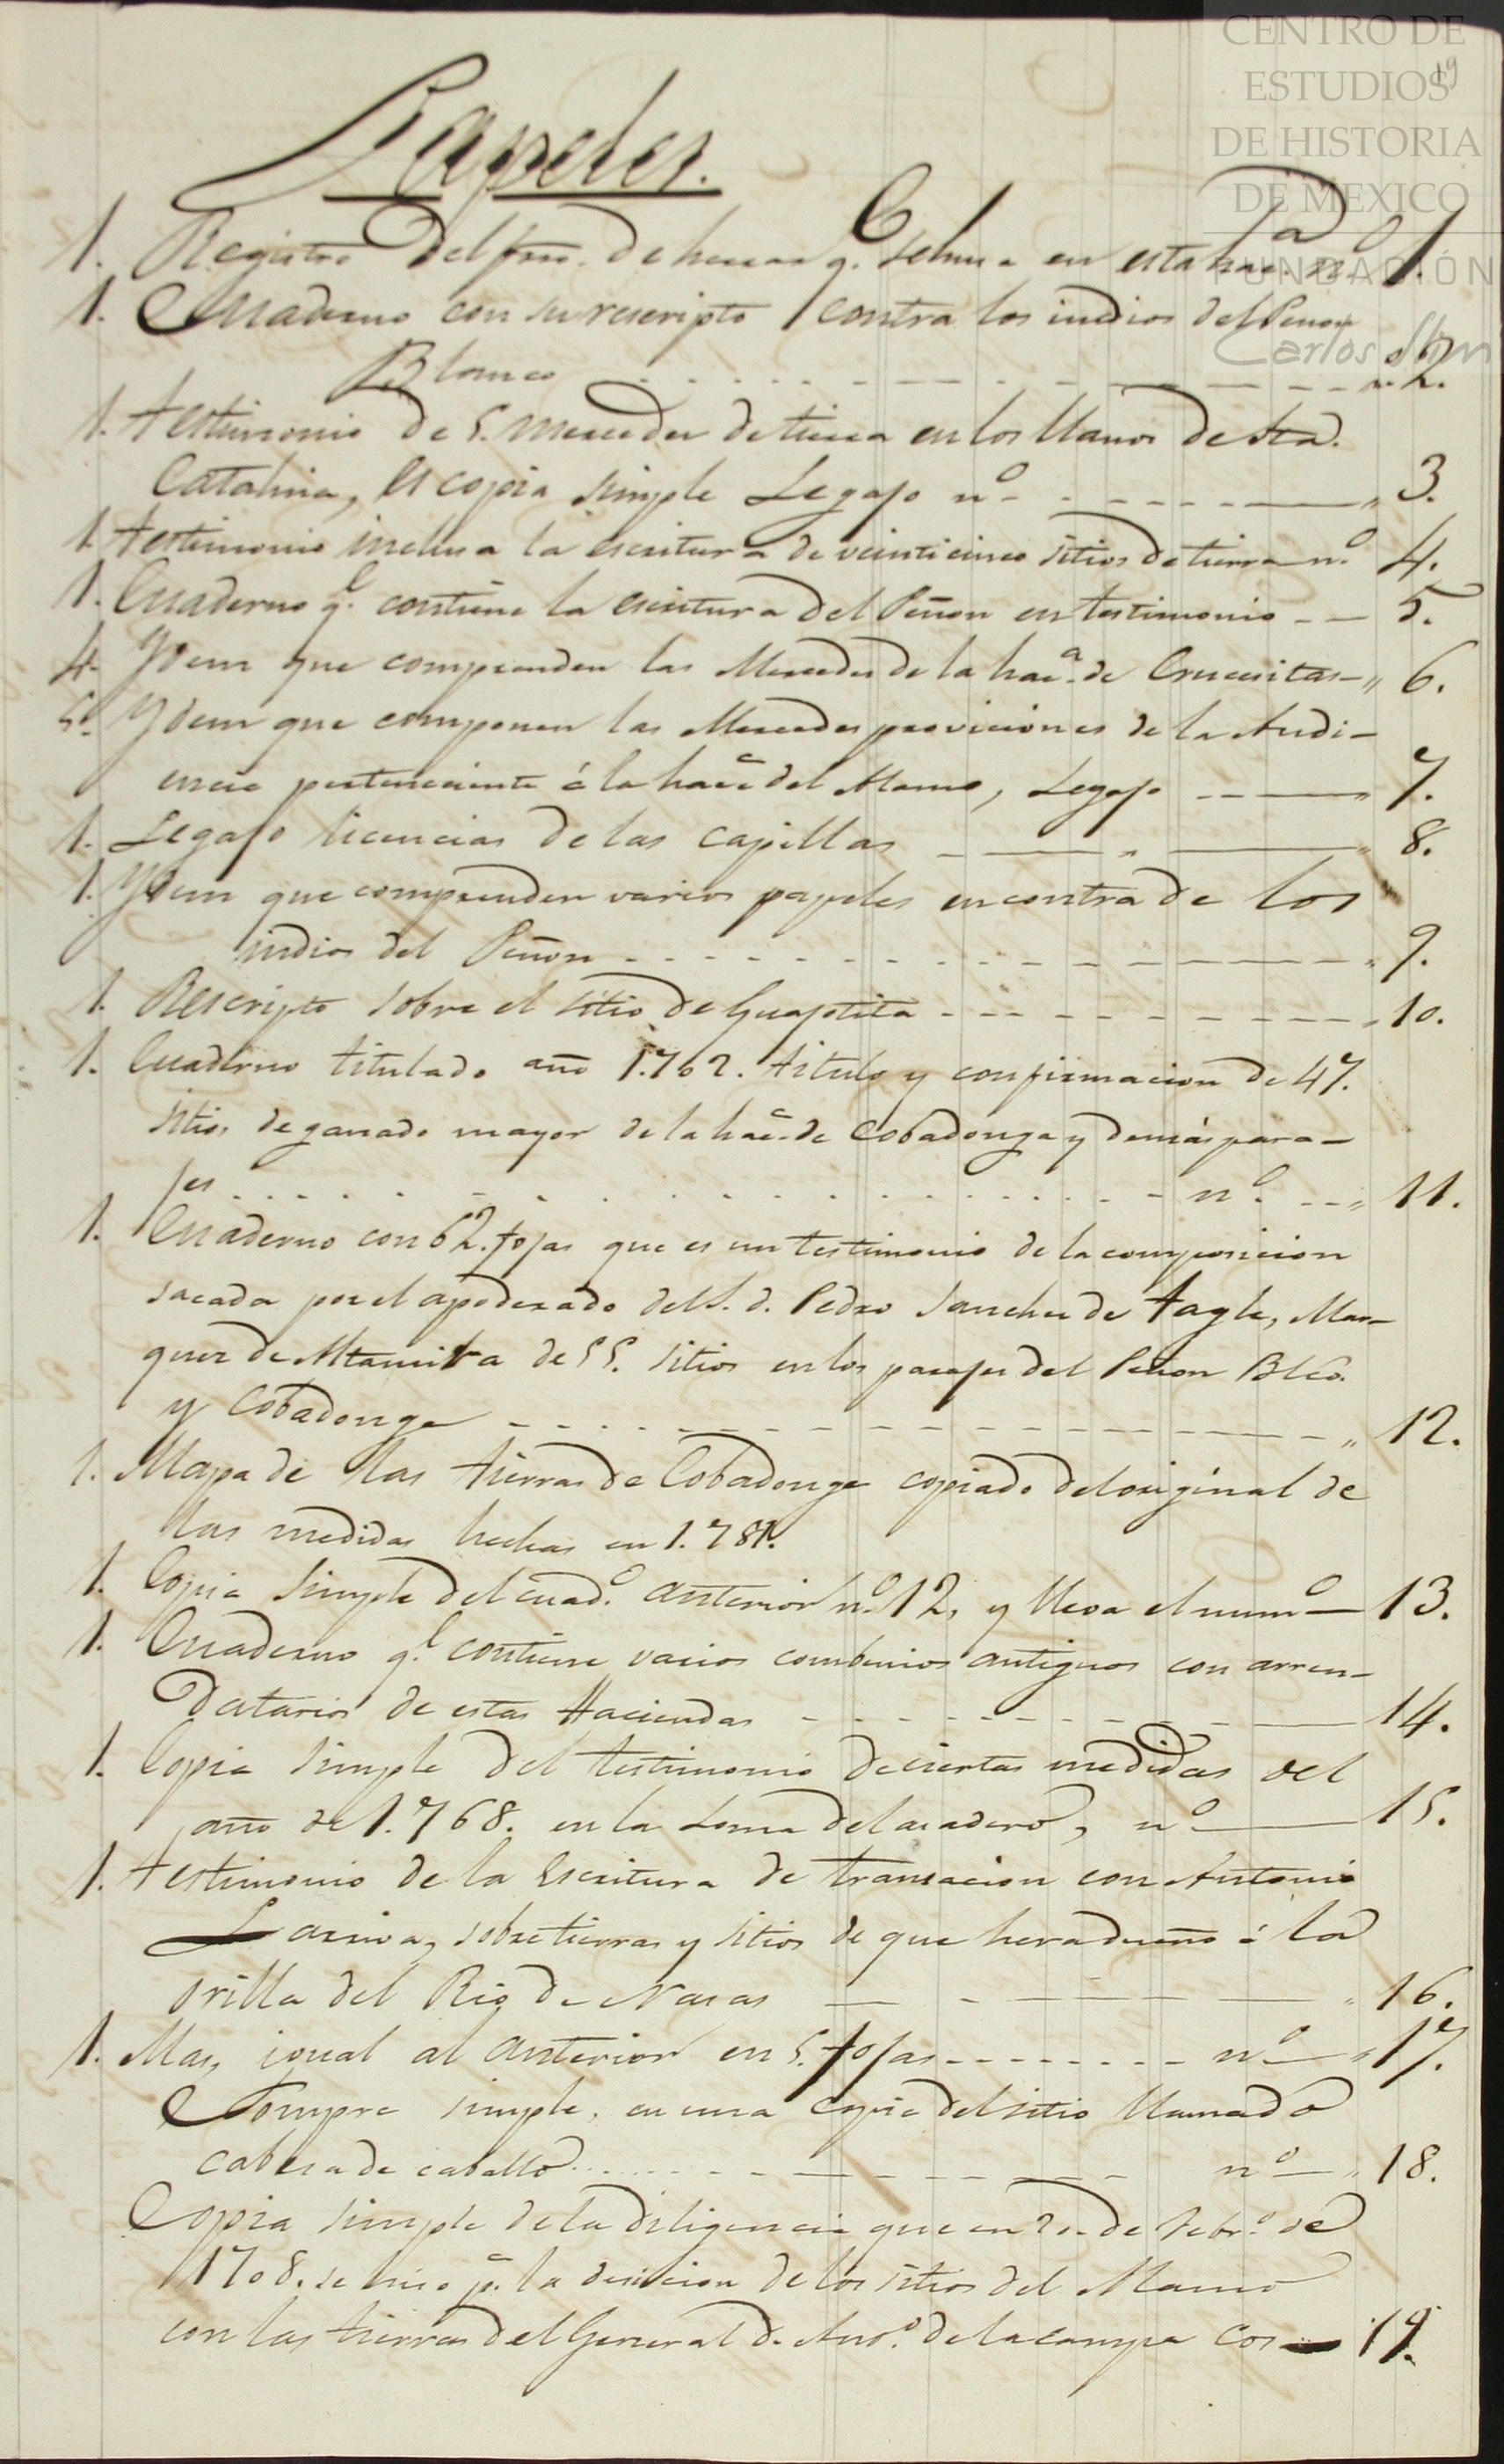 CENTRO DE
ESTUDIOS
DE HISTORIA
DE MEXICO
FUNDACIÓN
Carlos Slim
19
Papeles.
1. Registro del fierro de herrar q.e se usa en esta hac.da n.o 1.
1. Cuaderno con su rescripto contra los indios del Penon
Blanco n. 2.
1. Testimonio de 5. Mercedes de tierra en los llanos de Sta.
Catalina, es copia simple Legajo n.o 3.
1. Testimonio inclusa la escritura de veinticinco sitios de tierra n.o 4.
1. Cuaderno q.e contiene la escritura del Peñon en testimonio 5.
4. Ydem que comprenden las Mercedes de la hac.a de Crucesitas 6.
5. Ydem que componen las Mercedes proviciones de la Audi-
encia perteneciente á la hac.a del Alamo, Legajo 7.
1. Legajo licencias de las capillas 8.
1. Ydem que comprenden varios papeles en contra de los
indios del Peñon 9.
1. Rescripto sobre el sitio de Guajotita 10.
1. Cuaderno titulado año 1.762. titulo y confirmacion de 47.
sitios de ganado mayor de la hac.a de Cobadonga y demás para-
jes n.o 11.
1. Cuaderno con 62. fojas que es un testimonio de la composicion
sacada por el apoderado del S. d. Pedro Sanches de Tagle, Mar-
quez de Altamira de 55. sitios en los parajes del Penon Blco.
y Cobadonga 12.
1. Mapa de las tierras de Cobadonga copiado del original de
las medidas hechas en 1.781.
1. Copia simple del cuad.o anterior n.o 12, y lleva el num.o 13.
1. Cuaderno q.e contiene varios combenios antiguos con arren-
datarios de estas Haciendas 14.
1. Copia simple del testimonio de ciertas medidas del
año de 1.768. en la Loma del asadero, n.o 15.
1. Testimonio de la Escritura de transacion con Antonio
Lariva, sobre tierras y sitios de que hera dueño á la
orilla del Rio de Nasas 16.
1. Mas, igual al anterior en 5. fojas n.o 17.
Compra simple, en una copia del sitio llamado
cabesa de caballo n.o 18.
Copia simple de la diligencia que en 20. de Febr.o de
1708. se hiso p.a la divicion de los sitios del Alamo
con las tierras del General D. Ant.o de la campa Cos 19.